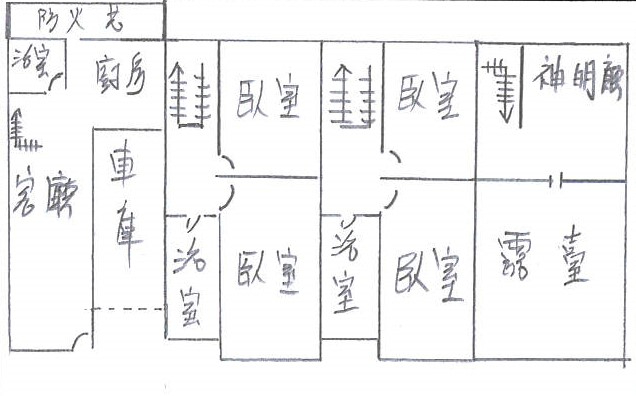 防火巷
浴室
廚房
客廳
車庫
臥室
浴室
臥室
臥室
浴室
臥室
神明廳
露臺